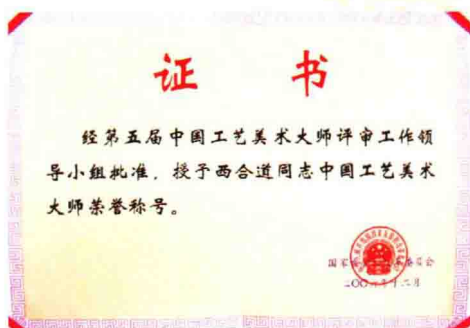 证 书
经第五届中国工艺美术大师评审工作领
导小组批准，授予西合道同志中国工艺美术
大师荣誉称号。
国家 委员会
二〇〇 年十二月